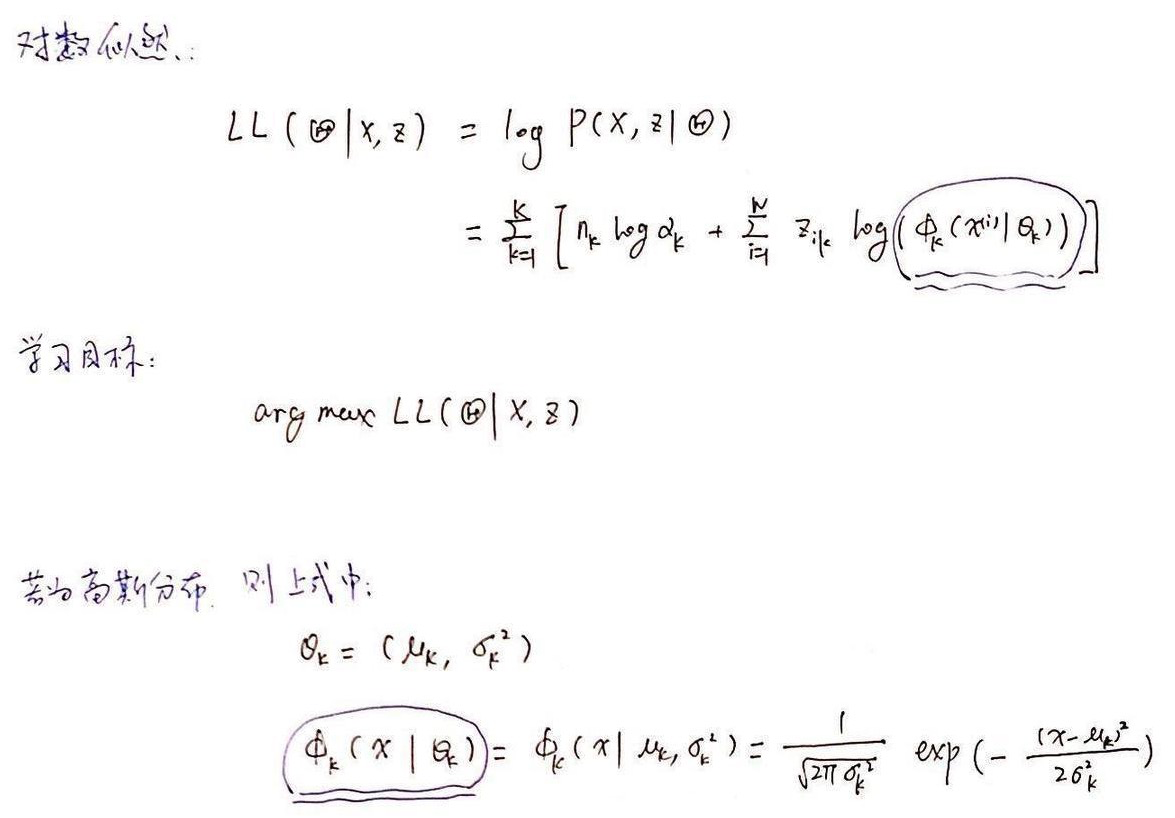 对数似然:
LL(Θ|X,z) = log P(X,z|Θ)
= ∑_{k=1}^{K} [ n_k log α_k + ∑_{i=1}^{N} z_{ik} log(ϕ_k(x^{(i)}|θ_k)) ]
学习目标:
arg max LL(Θ|X,z)
若为高斯分布, 则上式中:
θ_k = (μ_k, σ_k^2)
ϕ_k(x|θ_k) = ϕ_k(x|μ_k, σ_k^2) = \frac{1}{\sqrt{2π σ_k^2}} exp(-\frac{(x-μ_k)^2}{2σ_k^2})